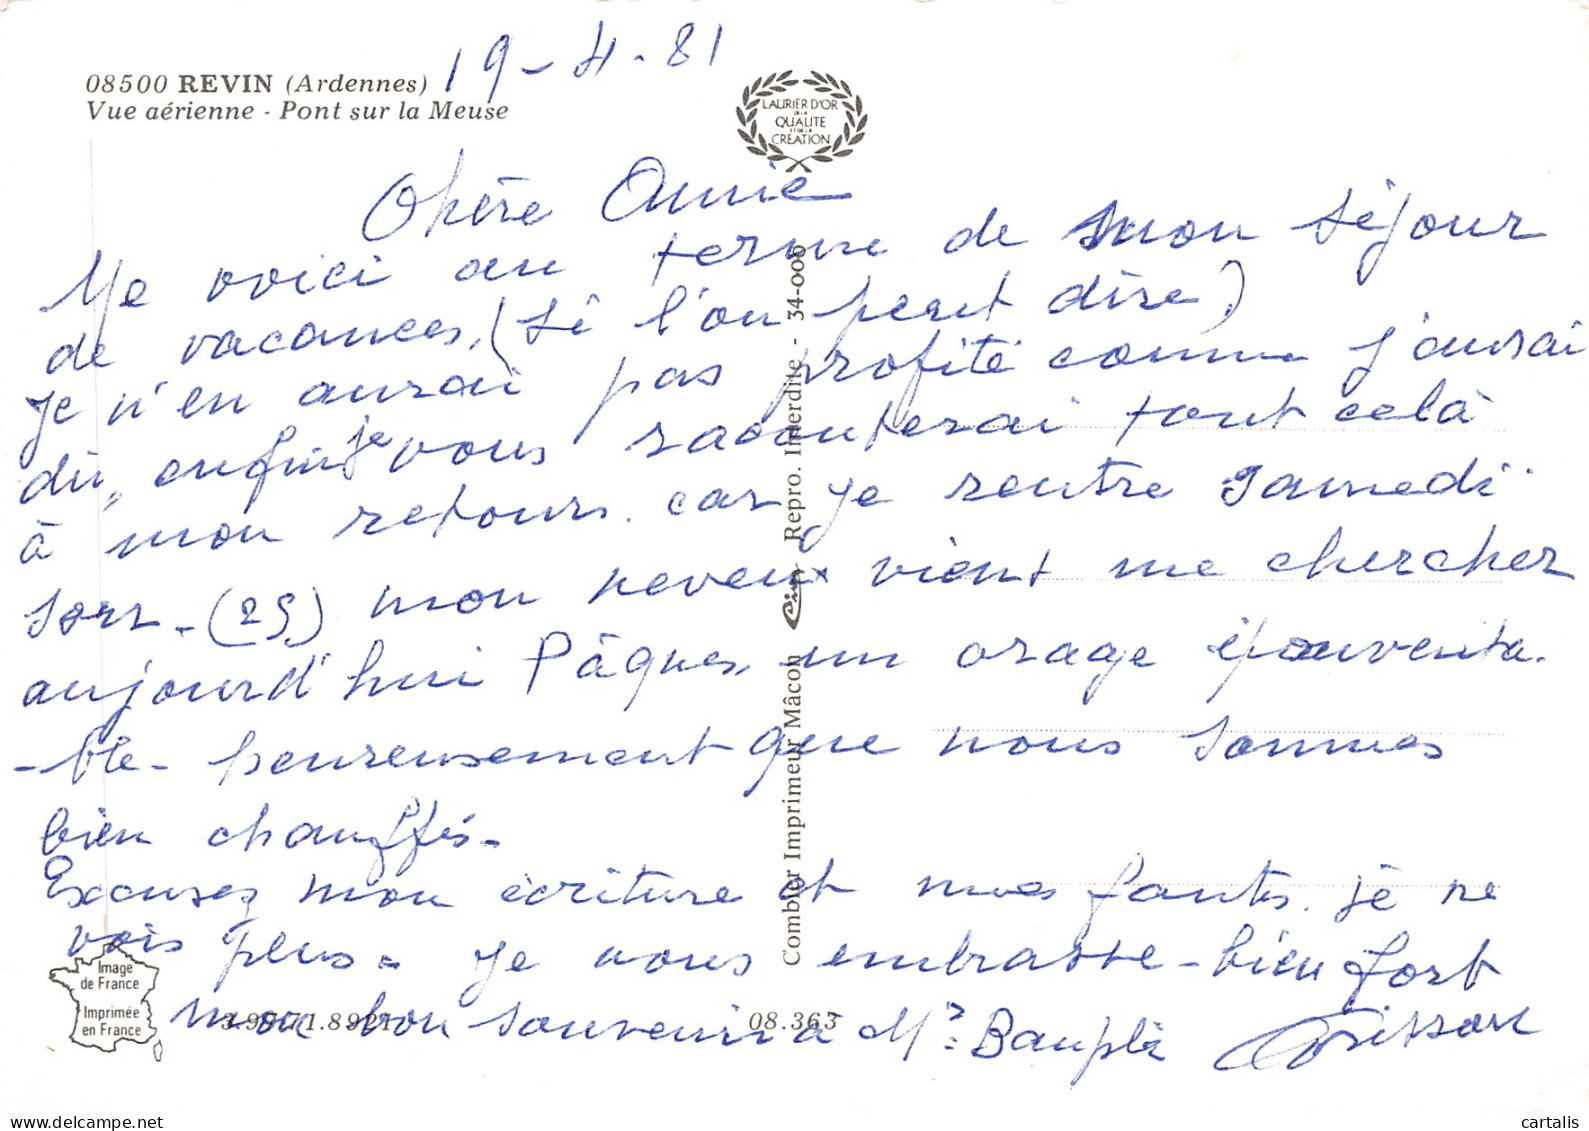 19-4-81
08500 REVIN (Ardennes)
Vue aérienne - Pont sur la Meuse
LAURIER D'OR
DE LA
QUALITE
ET DE LA
CREATION
Chère Annie
Me voici au terme de mon séjour
de vacances, (si l'on peut dire)
je n'en aurai pas profité comme j'aurai
dû, enfin je vous raconterai tout celà
à mon retour. car je rentre samedi
soir - (25) mon neveux vient me chercher
aujourd'hui Pâques un orage épouventa-
-ble - heureusement que nous sommes
bien chauffés -
Excusez mon écriture et mes fautes. je ne
vois plus - je vous embrasse - bien fort
mon bon souvenir à Mr Bauplé
Combier Imprimeur Mâcon Cim Repro. Interdite - 34-006
Image
de France
Imprimée
en France
08.363
cartalis
delcampe.net